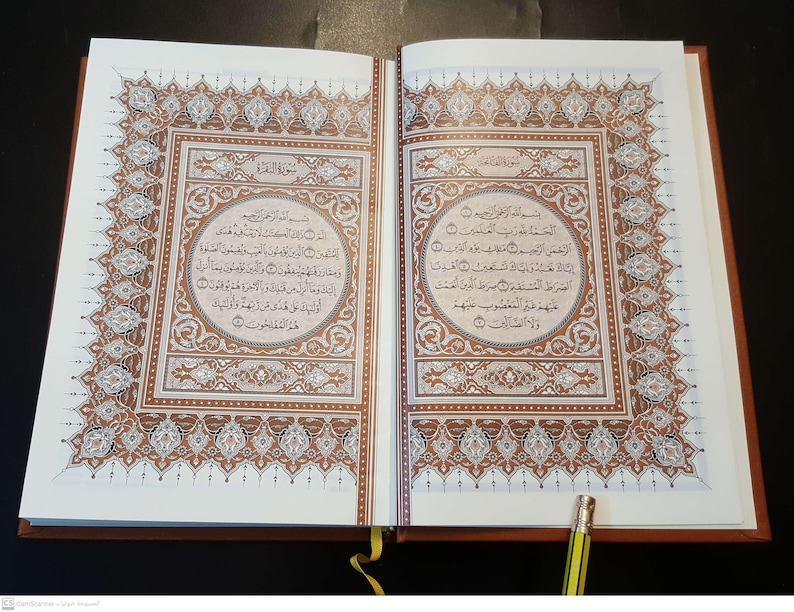 سُورَةُ الفَاتِحَةِ
بِسْمِ اللَّهِ الرَّحْمَٰنِ الرَّحِيمِ ١
الْحَمْدُ لِلَّهِ رَبِّ الْعَٰلَمِينَ ٢
الرَّحْمَٰنِ الرَّحِيمِ ٣ مَٰلِكِ يَوْمِ الدِّينِ ٤
إِيَّاكَ نَعْبُدُ وَإِيَّاكَ نَسْتَعِينُ ٥ اهْدِنَا
الصِّرَٰطَ الْمُسْتَقِيمَ ٦ صِرَٰطَ الَّذِينَ أَنْعَمْتَ
عَلَيْهِمْ غَيْرِ الْمَغْضُوبِ عَلَيْهِمْ
وَلَا الضَّالِّينَ ٧
سُورَةُ البَقَرَةِ
بِسْمِ اللَّهِ الرَّحْمَٰنِ الرَّحِيمِ
الٓمٓ ١ ذَٰلِكَ الْكِتَٰبُ لَا رَيْبَ فِيهِ هُدًى
لِّلْمُتَّقِينَ ٢ الَّذِينَ يُؤْمِنُونَ بِالْغَيْبِ وَيُقِيمُونَ الصَّلَوٰةَ
وَمِمَّا رَزَقْنَٰهُمْ يُنفِقُونَ ٣ وَالَّذِينَ يُؤْمِنُونَ بِمَا أُنزِلَ
إِلَيْكَ وَمَا أُنزِلَ مِن قَبْلِكَ وَبِالْآخِرَةِ هُمْ يُوقِنُونَ ٤
أُولَٰئِكَ عَلَىٰ هُدًى مِّن رَّبِّهِمْ وَأُولَٰئِكَ
هُمُ الْمُفْلِحُونَ ٥
CS CamScanner الممسوحة ضوئيا بـ